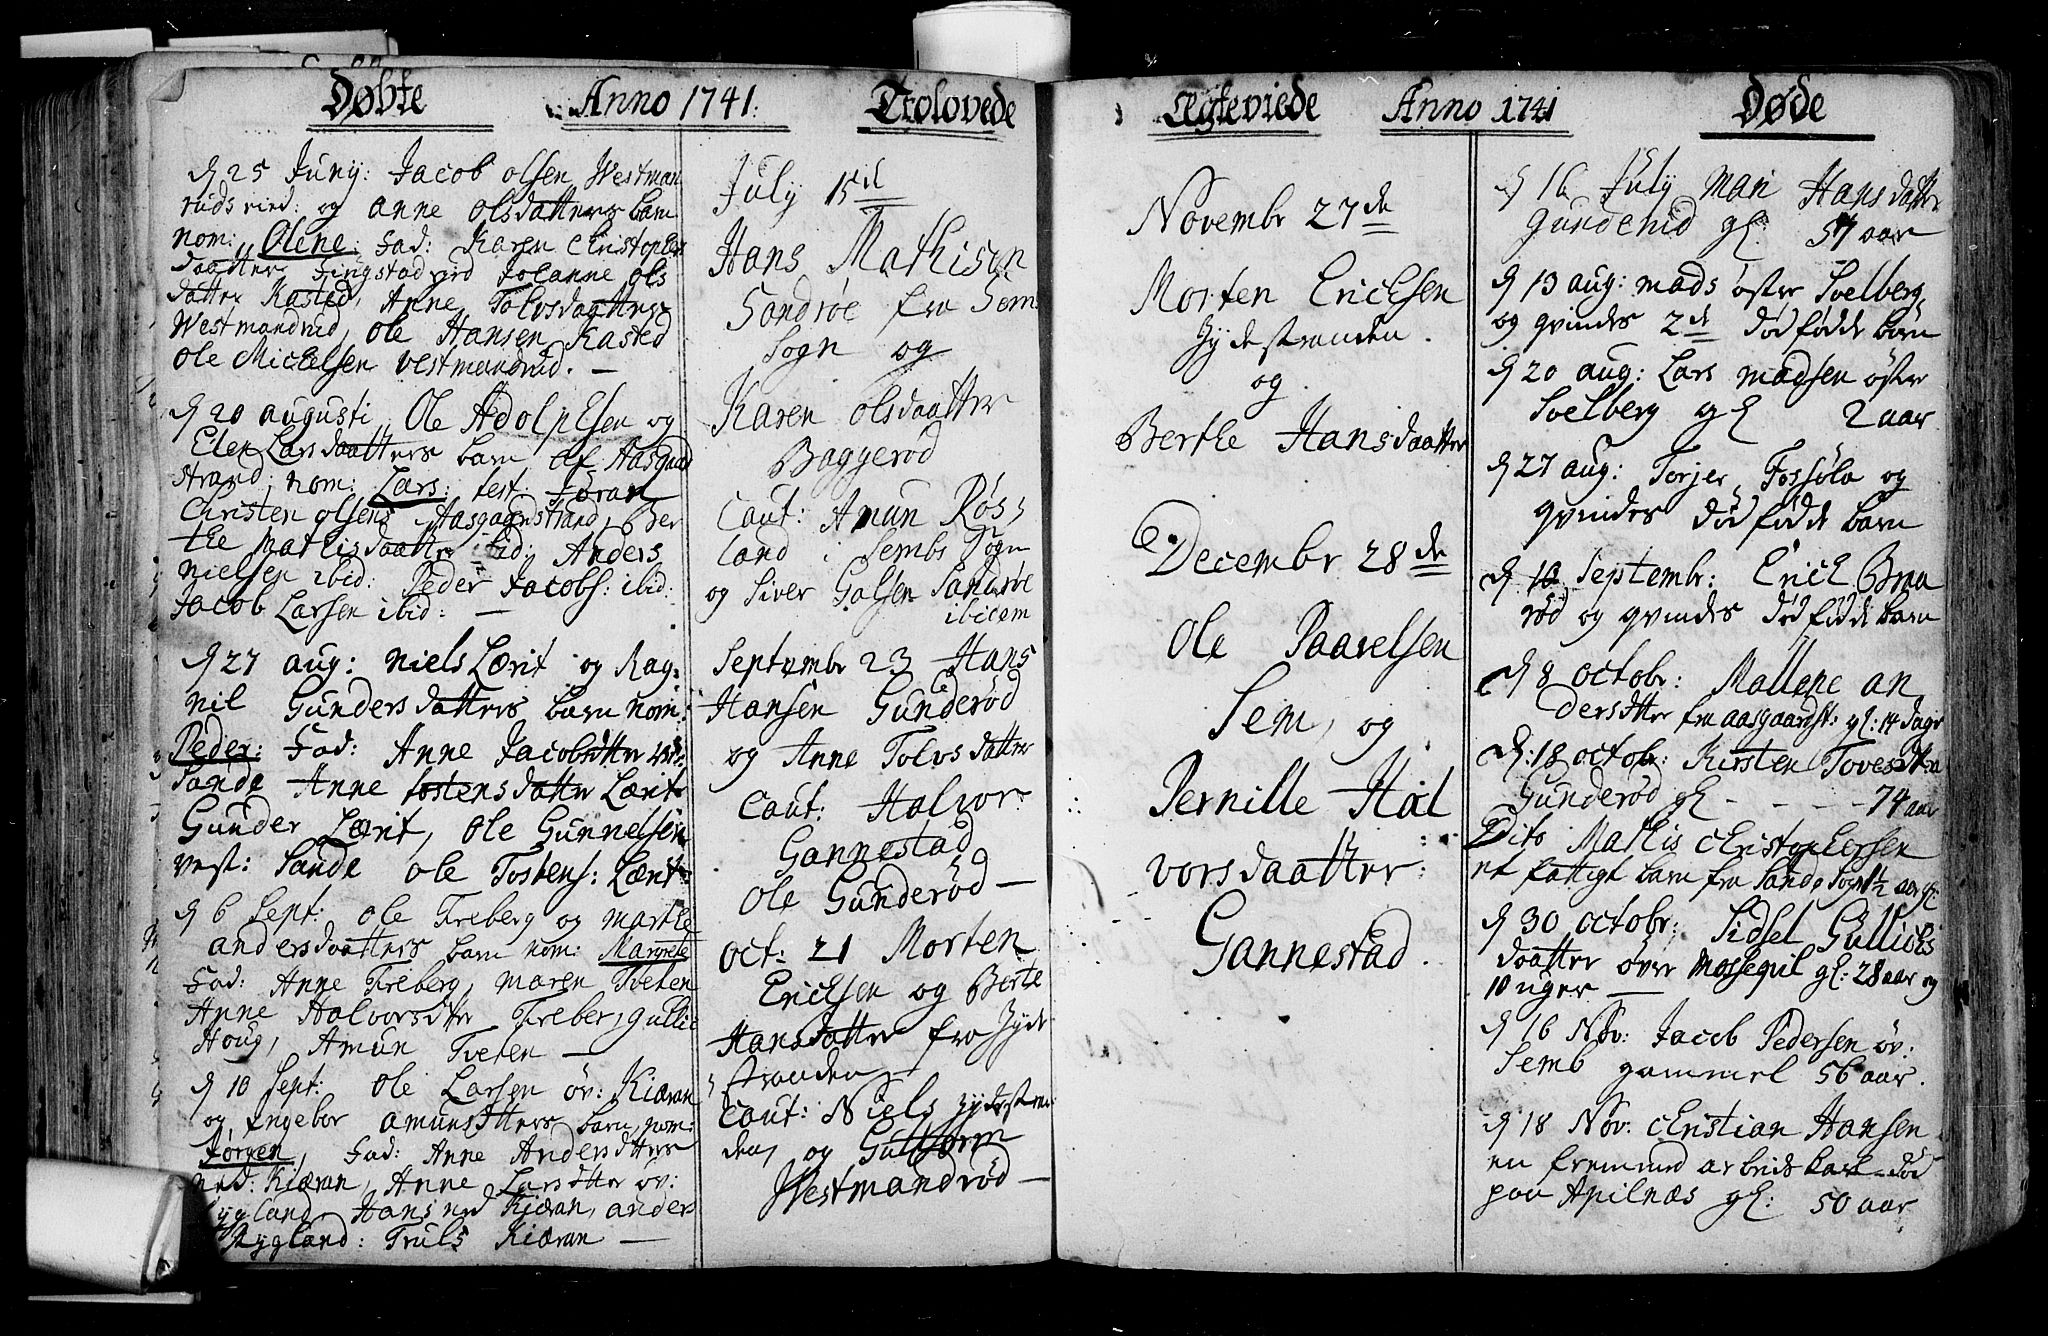 Døbte Anno 1741. Trolovede
d 25 Juny: Jacob olsen Westman
ruds ried: og anne olsdatters barn
nom: Olene: Fad: Karen Christophers
daatter Jingstad Johanne ols
datter Kasted, Anne Tolvsdaatter
Westmandrud, ole Hansen Kasted
ole Michelsen vestmandrud. —
d 20 augusti Ole Adolphsen og
Elen Larsdaatters barn af Aasgaard
strand, nom: Lars: test: Joran
Christen olsens Aasgaardstrand, Ber
the Mathisdaatter ibid: Anders
nielsen ibid: Peder Jacobs: ibid:
Jacob Larsen ibid: —
d 27 aug: niels Lærit og Rag-
nil Gunders datters barn nom:
Peder: Fad: Anne Jacobsdtter vest-
Sande Anne tostensdatter Lærit
Gunder Lærit, ole Gunnelsen
vest: Sande ole Tostens: Lærit
d 6 Sept: ole Freberg og marthe
andersdaatters barn nom: Margrete
Fad: Anne Freberg, maren Tveten
Anne Halvorsdtter Freber, Gullic
Houg, Amun Tveten —
d 10 Sept: ole Larsen øv: Kiæran
og Engebor amunsdtters barn nom:
Jørgen, Fad: Anne Andersdtter
ned: Kiæran, Anne Larsdtter øv:
Rygland, Hans ned Kiæran, anders
Rygland: Truls Kiæran —
July 15de
Hans Mathison
Sandrøe fra Sem
Sogn og
Karen olsdaatter
Baggerød
Caut: Amun Røs-
land i Sembs Sogn
og Siver Galsen Sandrøe
ibidem
Septembr 23 Hans
Hansen Gunderød
og Anne Tolvsdatter
Caut: Halvor
Gannestad
Ole Gunderød —
oct: 21 Morten
Ericksen og Berte
Hansdatter fra Jyde
stranden
Caut: Niels Jydestran
den, og Guttorm
Westmandrød —
Ægteviede Anno 1741 Døde
Novembr 27de
Morten Ericksen
Jydestranden.
og
Berthe Hansdaatter
Decembr 28de
Ole Paavelsen
Sem, og
Pernille Hal
vorsdaatter:
Gannestad.
d 16 July Mari Hansdatter
Gunderud gl: 57 aar
d 13 aug: mads øster Svelberg
og qvindes 2de dødfødde barn
d 20 aug: Lars madsen øster
Svelberg gl 2 aar
d 27 aug: Torjer Fossøla og
qvindes dødfødde barn
d 10 Septembr: Erich Bma
rød og qvindes dødfødde barn
d 8 octobr: Mallene an
dersdtter fra aasgaardst: gl: 14 dage
d: 18 octobr: Kirsten Tovesdtter
Gunderød gl - - - - 74 aar
Dito Mathis Christophersen
et fattigt barn fra Sande Sogn 1½ aar gl:
d 30 octobr: Sidsel Gullichs
daatter øvre Mosseqvil gl: 28 aar og
10 uger —
d 16 Nov: Jacob Pedersen øv:
Semb gammel 56 aar.
d 18 Nov: Christian Hansen
en fremmed arbeids karl død
paa Apilnæs gl: 50 aar